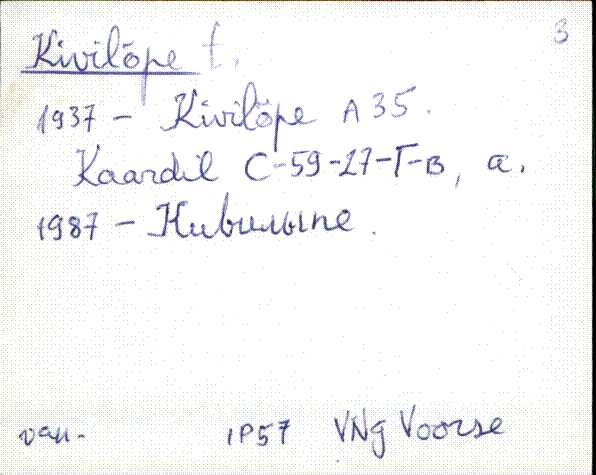 3
Kivilõpe t.
1937 - Kivilõpe A 35.
Kaardil С-59-27-Г-в, а.
1987 - Кивилыпе.
1P57 VNg Voorse